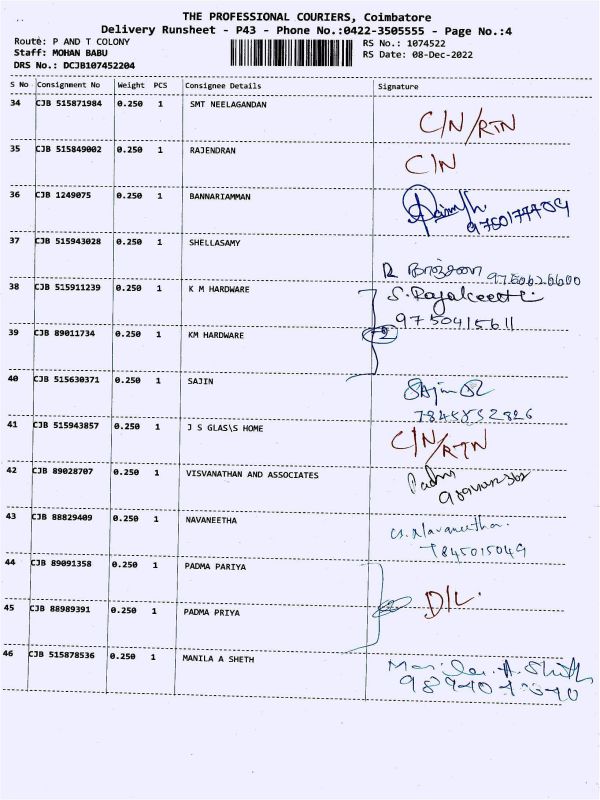 THE PROFESSIONAL COURIERS, Coimbatore
Delivery Runsheet - P43 - Phone No.:0422-3505555 - Page No.:4
Route: P AND T COLONY
RS No.: 1074522
Staff: MOHAN BABU
RS Date: 08-Dec-2022
DRS No.: DCJB107452204
S No Consignment No Weight PCS Consignee Details Signature
34 CJB 515871984 0.250 1 SMT NEELAGANDAN C/N/RTN
35 CJB 515849002 0.250 1 RAJENDRAN C/N
36 CJB 1249075 0.250 1 BANNARIAMMAN
37 CJB 515943028 0.250 1 SHELLASAMY
38 CJB 515911239 0.250 1 K M HARDWARE
9750415611
39 CJB 89011734 0.250 1 KM HARDWARE
40 CJB 515630371 0.250 1 SAJIN Sajin
7845852826
41 CJB 515943857 0.250 1 J S GLAS\S HOME C/N/RTN
42 CJB 89028707 0.250 1 VISVANATHAN AND ASSOCIATES
43 CJB 88829409 0.250 1 NAVANEETHA Navaneetha.
7845015049
44 CJB 89091358 0.250 1 PADMA PARIYA
D/L.
45 CJB 88989391 0.250 1 PADMA PRIYA
46 CJB 515878536 0.250 1 MANILA A SHETH Manila.A.Sheth